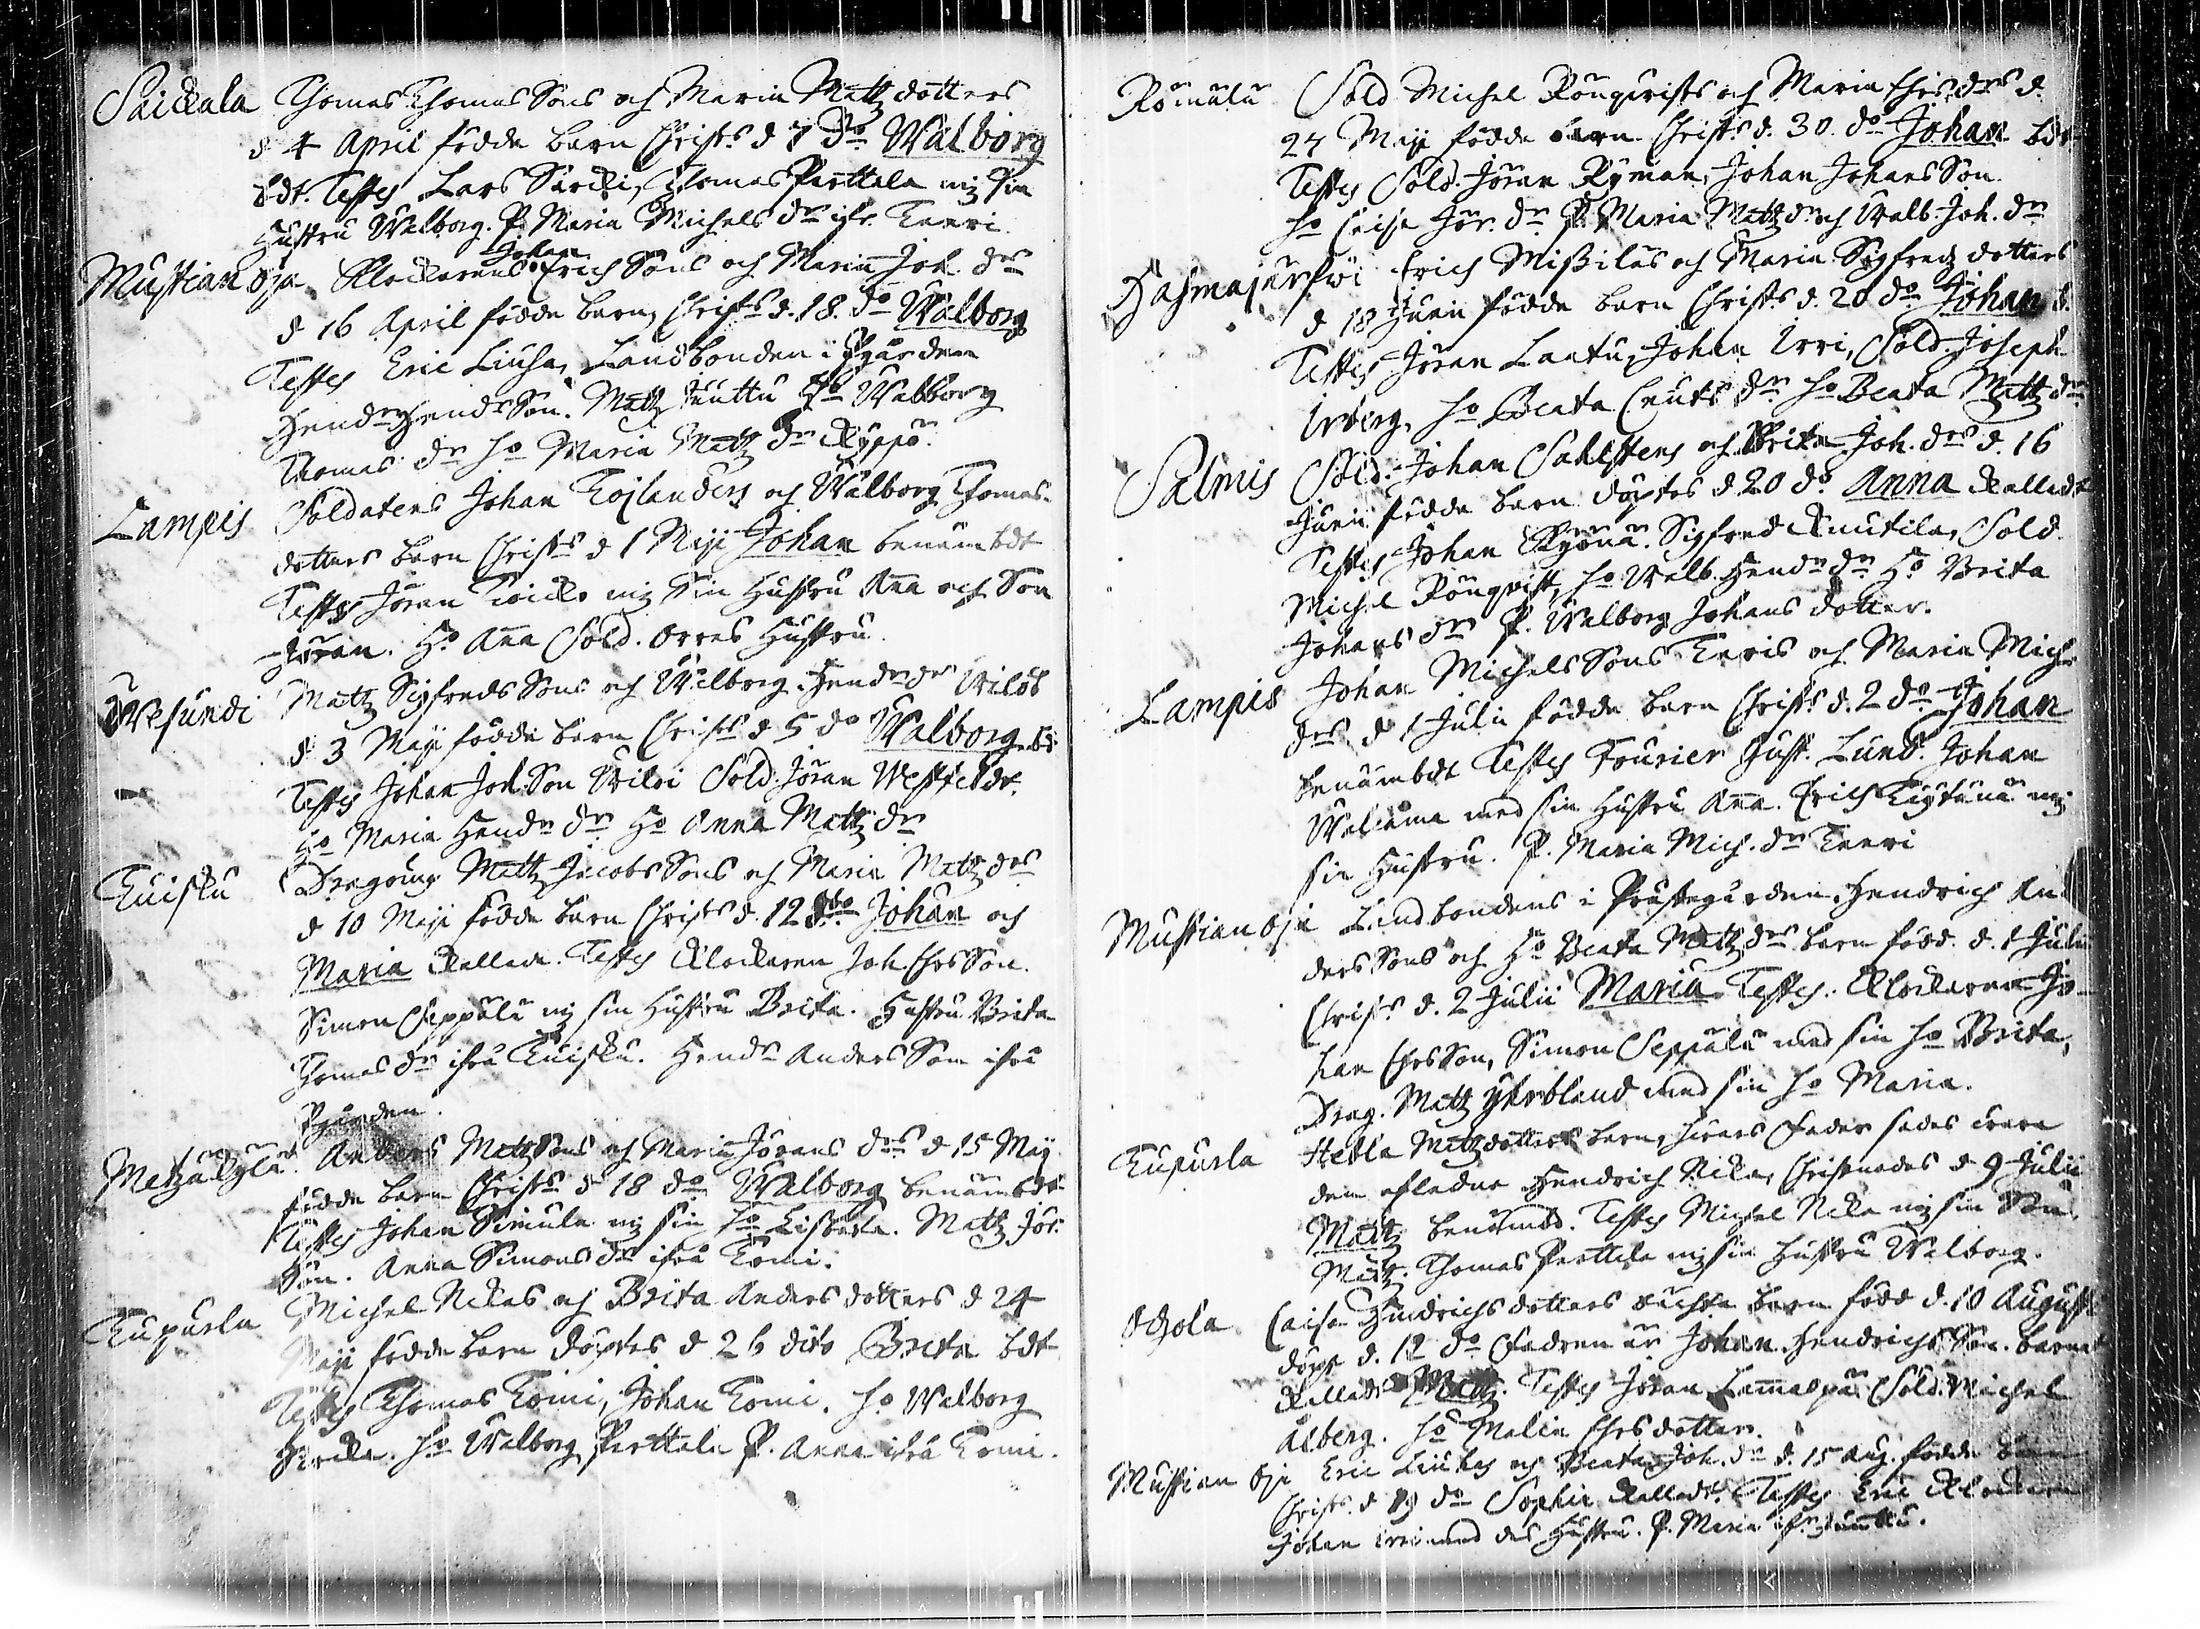 Saickala Thomas Thomas Sons och Maria Mattz dotters
d 4 April födde barn Christs d 7 do Walborg
bdt. Testes Lars Särcki, Thomas Perttala mz sin
Hustru Walborg. P. Maria Michels dr ifr. Kaeri
Johan
Mustian Oja Klockarens Erich Sons och Maria Joh. drs
d 16 April födde barn, Christs d. 18. do Walborg
Testes Eric Liuha, Landbonden i Pgården
Hendr Hendr Son. Mattz Juuttu Ho Walborg
Thomas dr Ho Maria Mattz dr Kyppö.
Lampis Soldatens Johan Kojlanders och Walborg Thomas
dotters barn Christs d 1 Maji Johan benämbdt
Testes Jöran mz sin Hustru Ana och Son
Jöran. Ho Ana Sold. Orres Hustru.
Wesundi Mattz Sigfreds Sons och Walborg Hendr drs
d 3 Maji födde barn Christs d 5 do Walborg
Testes Johan Joh. Son Sold. Jöran Westfeldt.
Ho Maria Hendr dr Ho Anna Mattz dr
Kuisku Dragouns Mattz Jacobs Sons och Maria Mattz drs
d 10 Maji födde barn Christs d. 12 do Johan och
Maria Kallade. Testes Klockaren Joh. Ers Son.
Simon Seppälä mz sin Hustru Brita. Hustru Brita
Thomas dr ifrå Kuisku. Hendr Anders Son ifrå
Pgården.
Metzäkylä. Anders Mattz Sons och Maria Jörans drs d 15 Maj
födde barn Christs d 18 do Walborg benämbdt
Testes Johan Simula mz sin Ho Lisbeta. Mattz Jör.
Son. Anna Simons dr ifrå Tomi.
Kupurla Michel Nikas och Brita Anders dotters d 24
Maji födde barn döptes d 26 dito Brita bdt
Testes Thomas Tomi, Johan Tomi. Ho Walborg
Ho Walborg Perttala P. Anna ifrå Tomi.
Römälä Sold Michel Rönqvists och Maria Ers drs d.
24 Maji födde barn Christs d. 30. do Johan bdt
Testes Sold. Jöran Ryman, Johan Johans Son
Ho Caisa Jör. dr P. Maria Mattz dr och Walb. Joh. dr
Hahmajärfwi Erich Missilas och Maria Sigfredz dotters
d 18 Junii födde barn Christs d. 20 do Johan b.
Testes Jöran Laatu, Johan Irri, Sold. Joseph
Irberg, Ho Beata Cnuts dr Ho Beata Mattz dr
Salmis Sold. Johan Sahlstens och Brita Joh. drs d. 16
Junii födde barn döptes d 20 do Anna kalladt
Testes Johan Sigfred Knutila, Sold.
Michel Rönqvist, Ho Walb. Hendr dr Ho Brita
Johans dr P. Walborg Johans dotter.
Lampis Johan Michels Sons Kaeris och Maria Mich.
drs d 1 Julii födde barn Christs d. 2 do Johan
benämbdt Testes Fourier Gust. Lund. Johan
med sin Hustru Ana. Erich mz
sin Hustru. P. Maria Mich. dr Kaeri
Mustian Oja Landbondens i Prästegården, Hendrich An
ders Sons och Ho Beata Mattz drs barn född. d. 1 Julii
Christs d. 2 Julii Maria Testes. Klockaren Jo-
han Ers Son, Simon Seppälä med sin Ho Brita,
Drag. Mattz med sin Ho Maria.
Kupurla Hebla Mattz dotters barn, hwars fader sades wara
den afledne Hendrich Nika, Christnades d 9 Julii
Mattz benämbd. Testes Michel Nika mz sin Son
Mattz. Thomas Perttala mz sin hustru Walborg.
Caisa Hindrichs dotters oächta barn född d. 10 Augusti
döpt d. 12 do Fadren är Johan Hendrichs Son. barnet
Kallades Mattz. Testes Jöran Lamaspä Sold. Michel
Alberg. Ho Malin Ers dotter.
Mustian Oja Eric Liuhas och Beata Joh. drs d. 15 Aug. födde barn
Christs. d 19 do Sophia kalladt. Testes Eric Klockare
Johan Irri med des Hustru. P. Maria ifr. Juuttu.